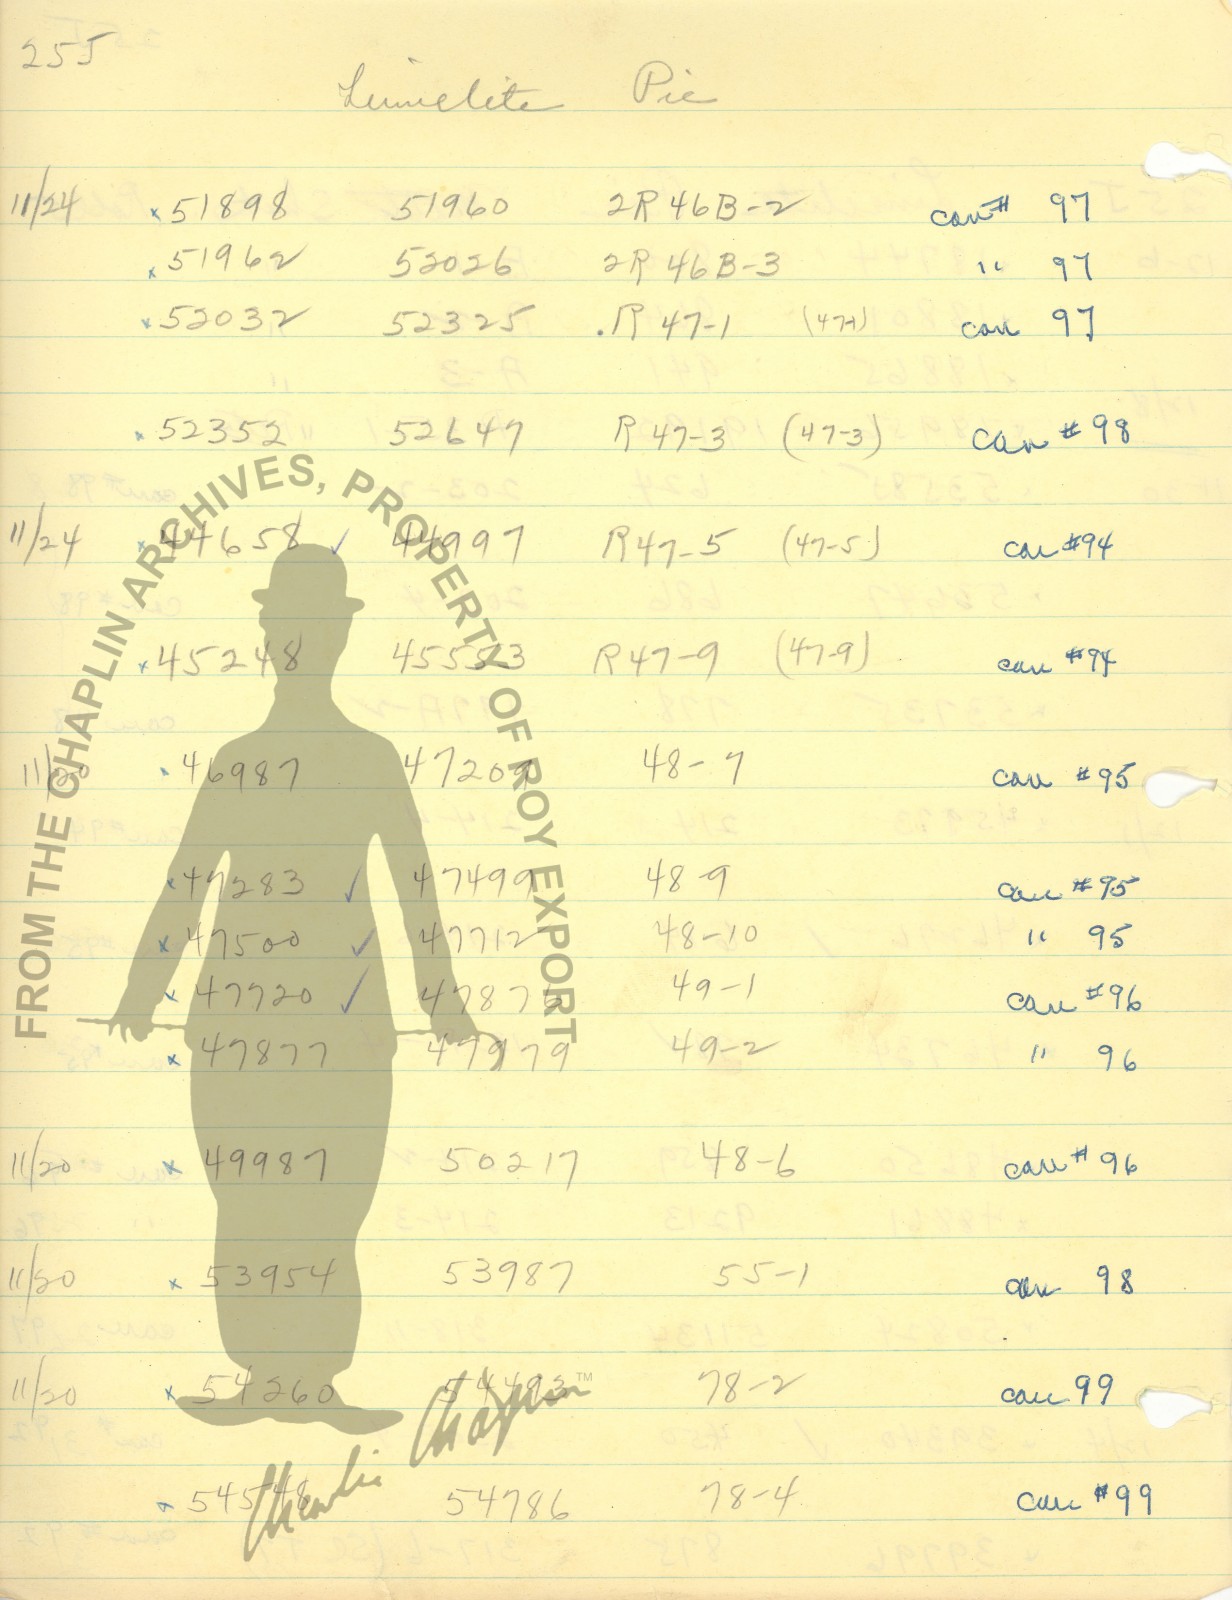 255
Limelite Pic
11/24 x 51898 51960 2R 46B-2 can # 97
x 51962 52026 2R 46B-3 " 97
x 52032 52325 . R 47-1 can 97
x 52352 52647 R 47-3 (47-3) can # 98
11/24 x 44658 ✓ 44997 R 47-5 (47-5) can #94
x 45248 R 47-9 (47-9) can #94
11/20 x 46987 47209 48-7 can #95
x 47283 ✓ 47499 48-9 can #95
x 47500 ✓ 47712 48-10 " 95
x 47720 ✓ 49-1 can #96
x 47877 47979 49-2 " 96
11/20 x 49987 50217 48-6 can # 96
11/20 x 53954 53987 55-1 can 98
11/20 x 54260 54493 78-2 can 99
x 54548 54786 78-4 can #99
FROM THE CHAPLIN ARCHIVES, PROPERTY OF ROY EXPORT
Charlie Chaplin ™